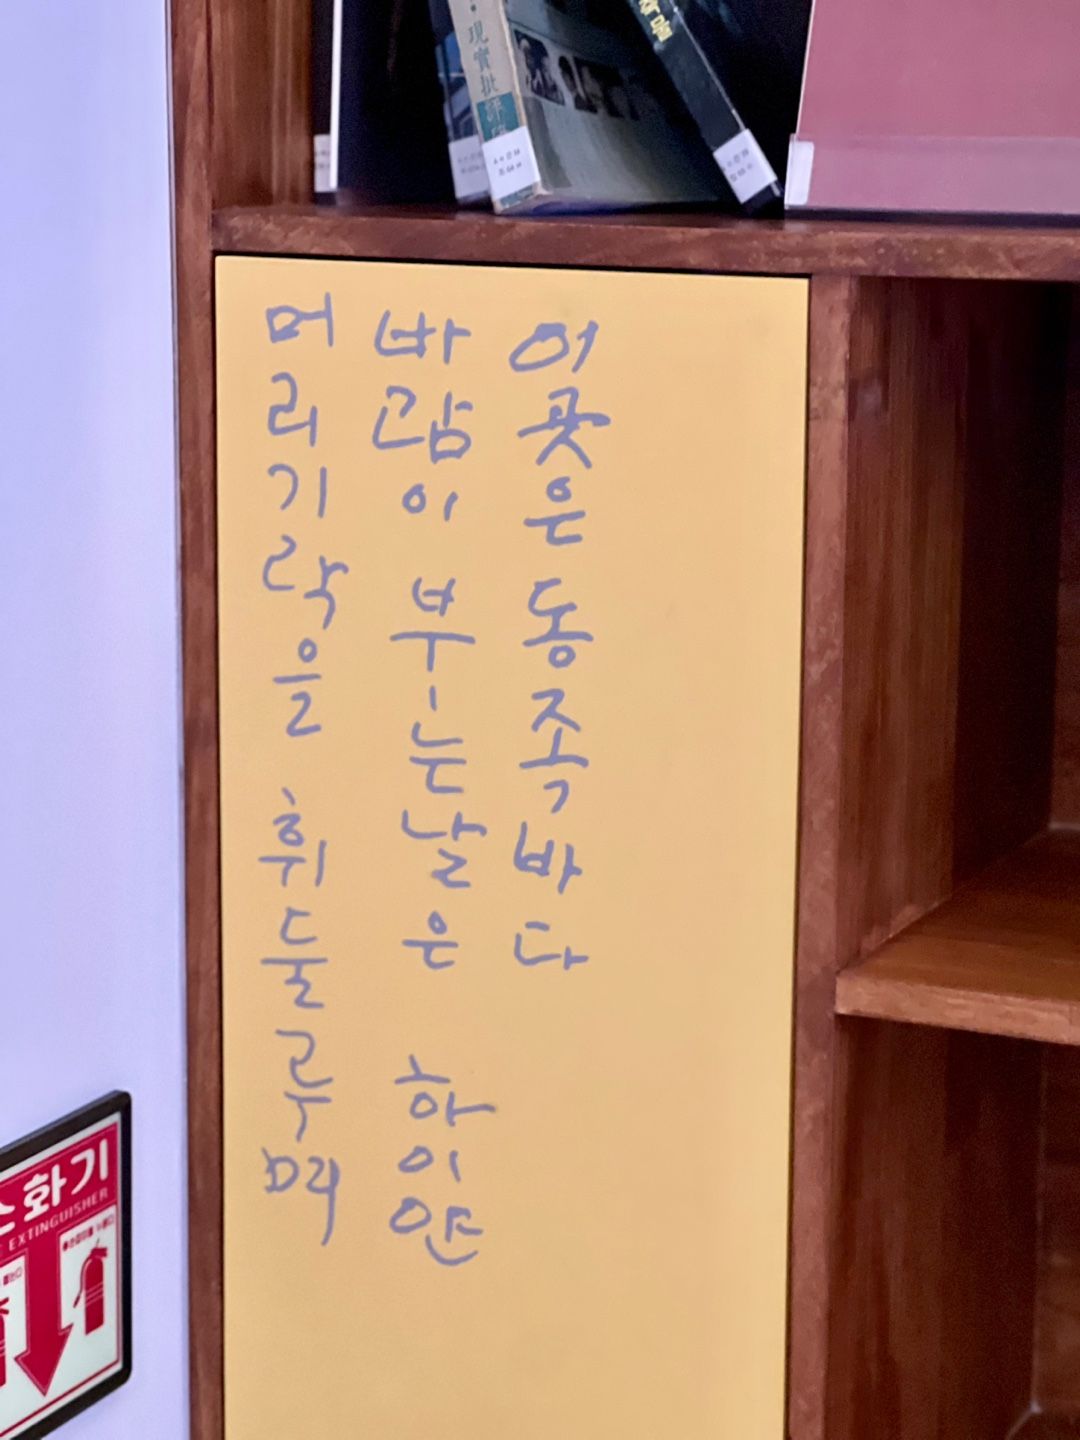 現實批評
이곳은 동족바다
바람이 부는날은 하이얀
머리기락을 휘둘루며
소화기
EXTINGUISHER